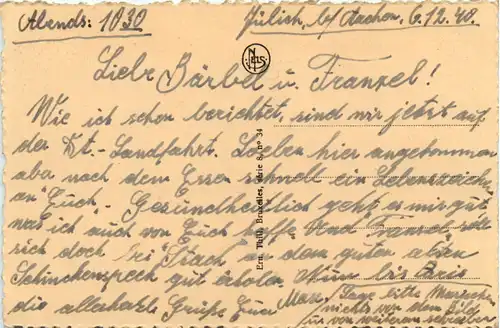 Abends: 1030
Jülich, b/ Aachen, 6.12.40.
NELS
Liebe Bärbel u. Franzel!
Wie ich schon berichtet, sind wir jetzt auf
der Dt.-Landfahrt. Soeben hier angekommen
aber nach dem Essen schnell ein Lebenszeichen
an Euch. Gesundheitlich geht es mir gut
was ich auch von Euch hoffe. Und Franzel soll
sich doch bei Euch an dem guten
Schinkenspeck gut erholen. Nun bis
die allerbeste Grüße Euer Max.
Tage bitte
nichts von dem Bild
u. von weiterem schreiben
Ern. Thill, Bruxelles, Série 8, N° 34